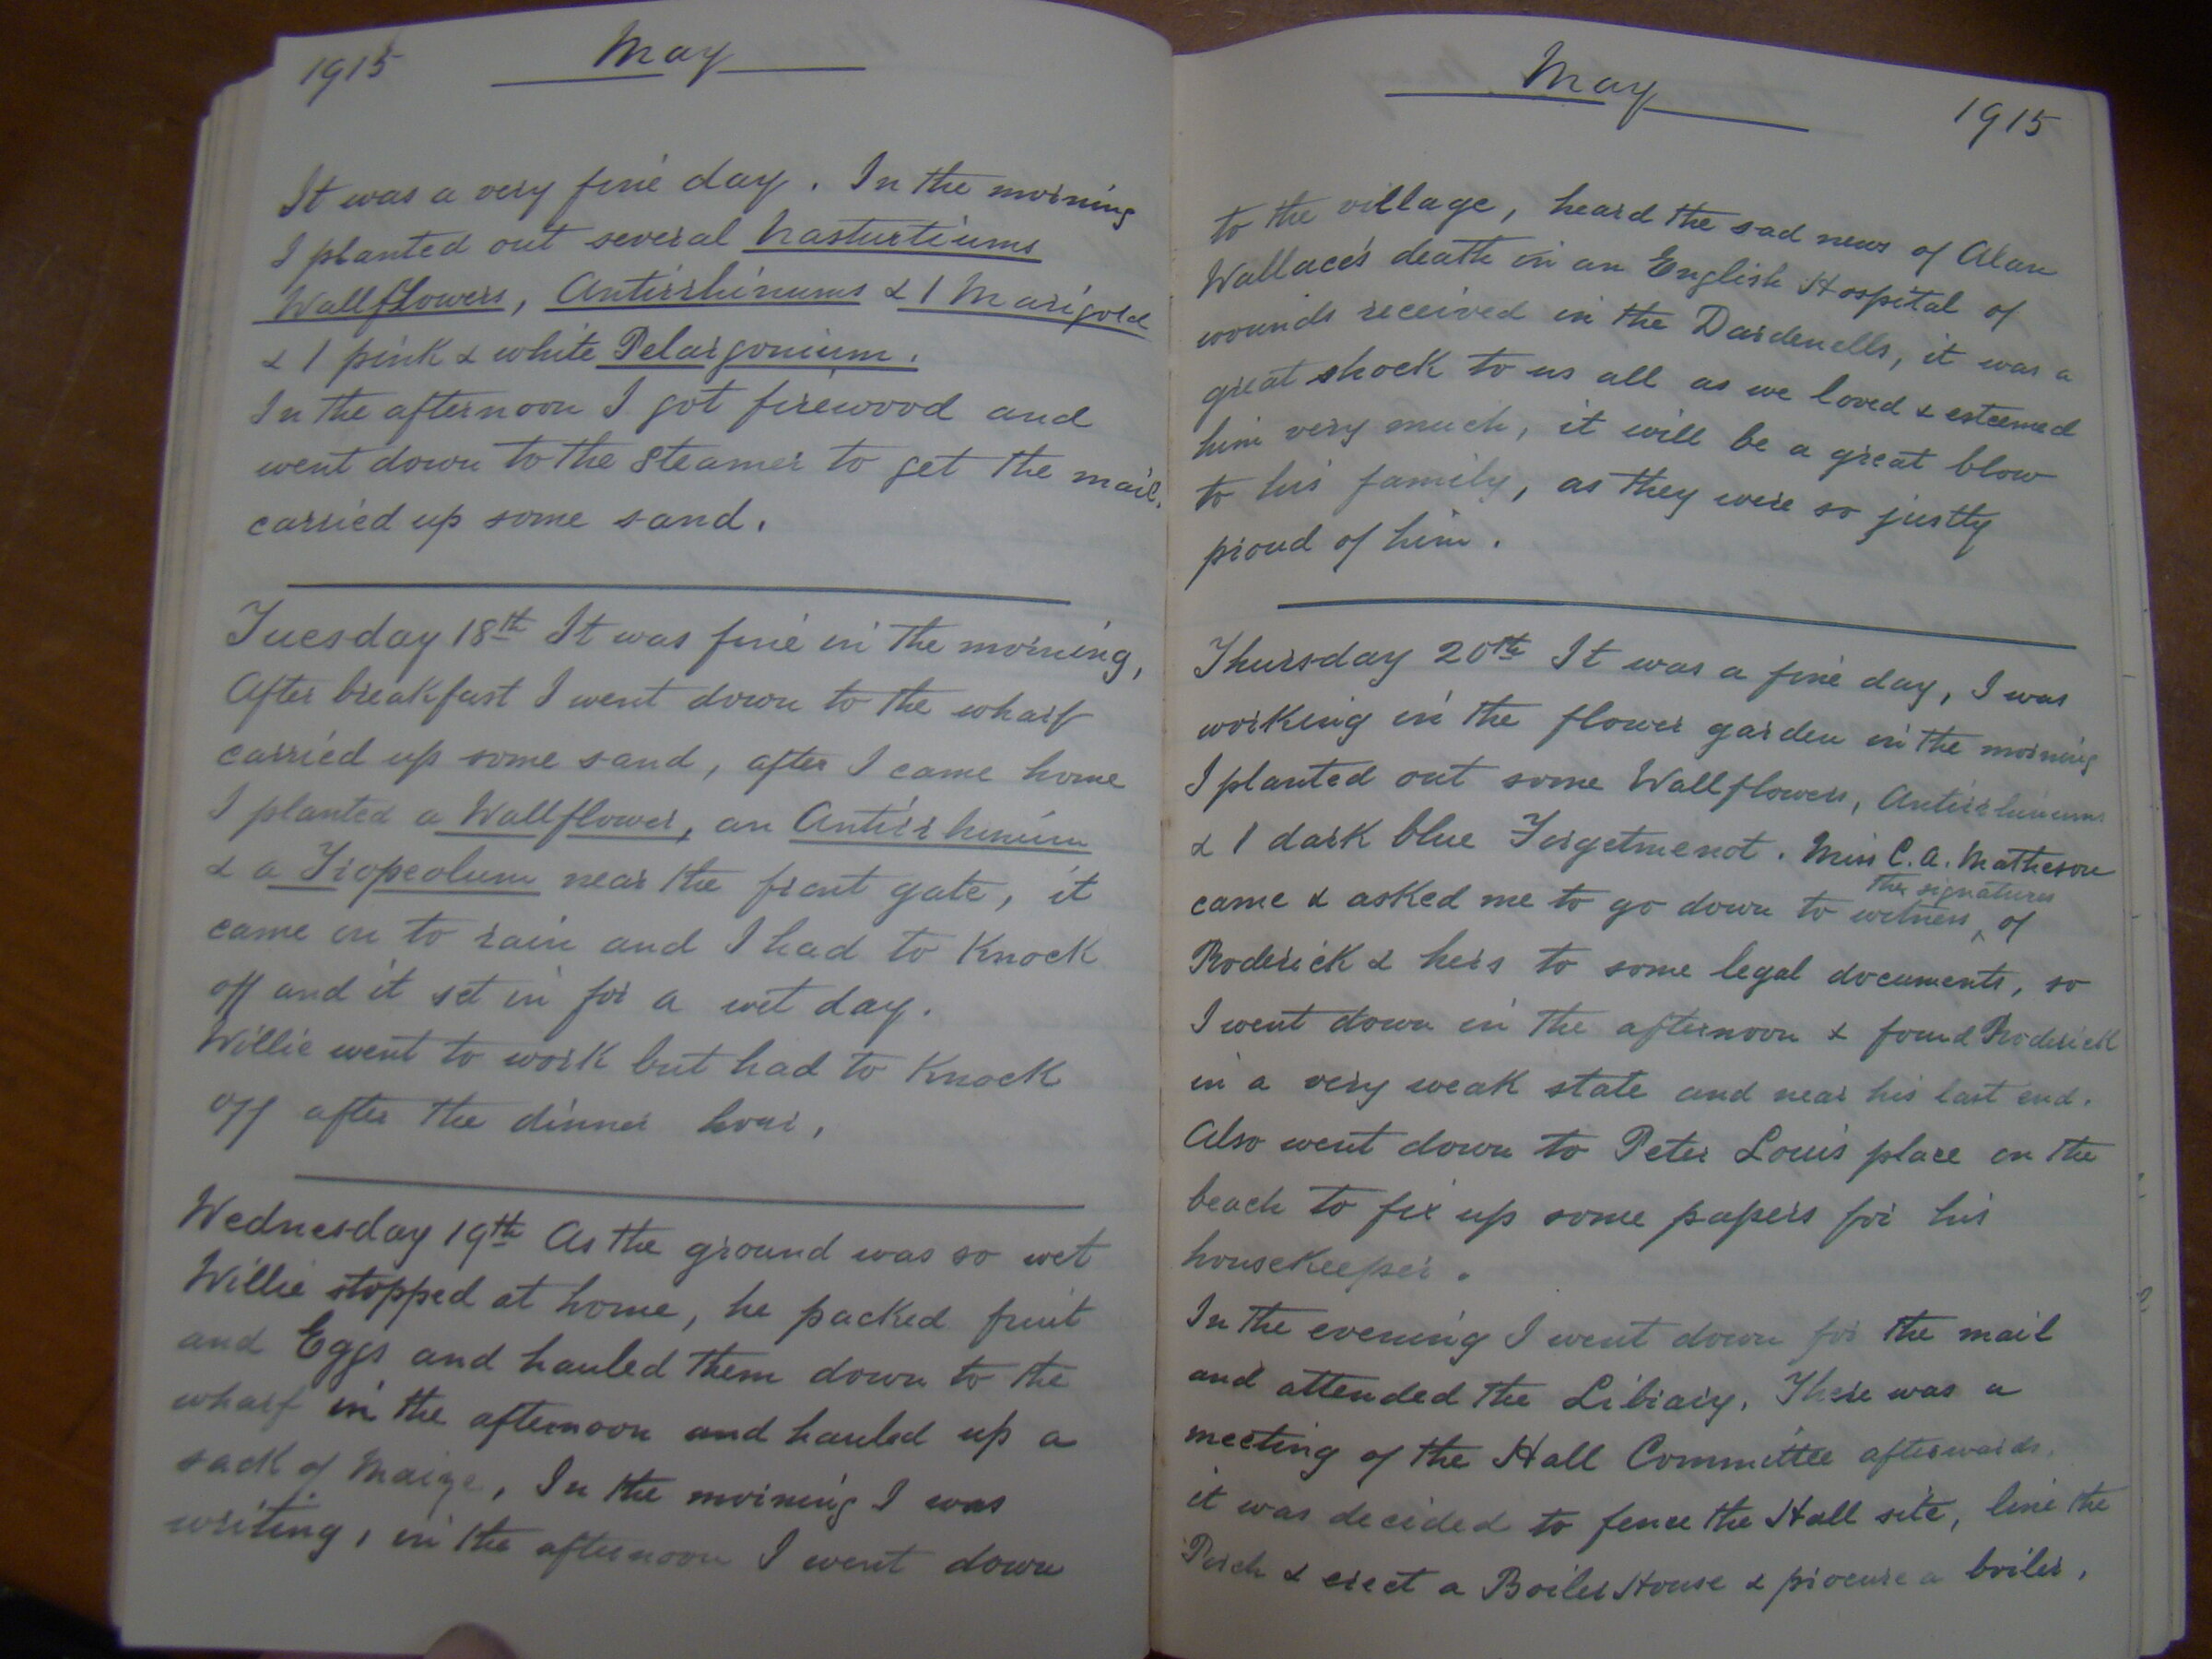 1915 May
It was a very fine day. In the morning
I planted out several Nasturtiums
Wallflowers, Antirrhinums & 1 Marigold
& 1 pink & white Pelargonium.
In the afternoon I got firewood and
went down to the steamer to get the mail,
carried up some sand.
Tuesday 18th It was fine in the morning,
After breakfast I went down to the wharf
carried up some sand, after I came home
I planted a Wallflower, an Antirrhinum
& a Tropeolum near the front gate, it
came on to rain and I had to knock
off and it set in for a wet day.
Willie went to work but had to knock
off after the dinner hour.
Wednesday 19th As the ground was so wet
Willie stopped at home, he packed fruit
and Eggs and hauled them down to the
wharf in the afternoon and hauled up a
sack of Maize, In the morning I was
writing, in the afternoon I went down
May 1915
to the village, heard the sad news of Alan
Wallace's death in an English Hospital of
wounds received in the Dardenells, it was a
great shock to us all as we loved & esteemed
him very much, it will be a great blow
to his family, as they were so justly
proud of him.
Thursday 20th It was a fine day, I was
working in the flower garden in the morning
I planted out some Wallflowers, Antirrhinums
& 1 dark blue Forgetmenot. Miss C. A. Matheson
came & asked me to go down to witness the signatures of
Roderick & hers to some legal documents, so
I went down in the afternoon & found Roderick
in a very weak state and near his last end.
Also went down to Peter Louis place on the
beach to fix up some papers for his
housekeeper.
In the evening I went down for the mail
and attended the Library. There was a
meeting of the Hall Committee afterwards,
it was decided to fence the Hall site, line the
Porch & erect a Boiler House & procure a boiler.